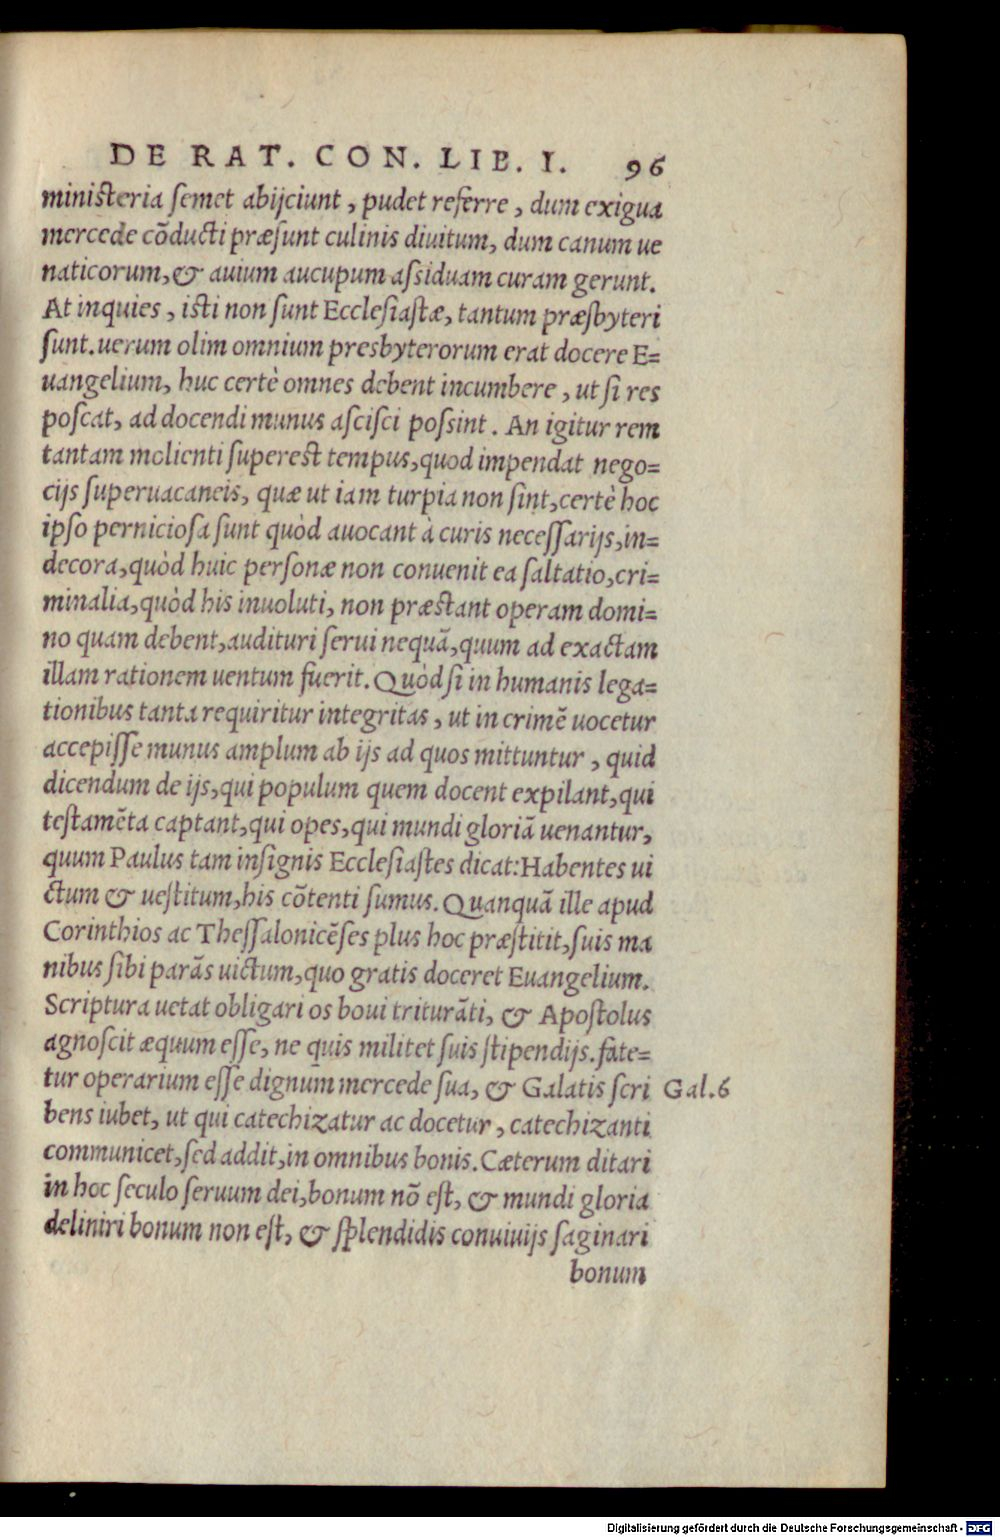 DE RAT. CON. LIB. I. 96
ministeria semet abijciunt, pudet referre, dum exigua
mercede cõducti præsunt culinis diuitum, dum canum ue
naticorum, & auium aucupum assiduam curam gerunt.
At inquies, isti non sunt Ecclesiastæ, tantum præsbyteri
sunt. uerum olim omnium presbyterorum erat docere E=
uangelium, huc certè omnes debent incumbere, ut si res
poscat, ad docendi munus ascisci possint. An igitur rem
tantam molienti superest tempus, quod impendat nego=
cijs superuacaneis, quæ ut iam turpia non sint, certè hoc
ipso perniciosa sunt quòd auocant à curis necessarijs, in=
decora, quòd huic personæ non conuenit ea saltatio, cri=
minalia, quòd his inuoluti, non præstant operam domi=
no quam debent, audituri serui nequã, quum ad exactam
illam rationem uentum fuerit. Quòd si in humanis lega=
tionibus tanta requiritur integritas, ut in crimẽ uocetur
accepisse munus amplum ab ijs ad quos mittuntur, quid
dicendum de ijs, qui populum quem docent expilant, qui
testamẽta captant, qui opes, qui mundi gloriã uenantur,
quum Paulus tam insignis Ecclesiastes dicat: Habentes ui
ctum & uestitum, his cõtenti sumus. Quanquã ille apud
Corinthios ac Thessalonicẽses plus hoc præstitit, suis ma
nibus sibi parãs uictum, quo gratis doceret Euangelium.
Scriptura uetat obligari os boui triturãti, & Apostolus
agnoscit æquum esse, ne quis militet suis stipendijs. fate=
tur operarium esse dignum mercede sua, & Galatis scri Gal. 6
bens iubet, ut qui catechizatur ac docetur, catechizanti
communicet, sed addit, in omnibus bonis. Cæterum ditari
in hoc seculo seruum dei, bonum nõ est, & mundi gloria
deliniri bonum non est, & splendidis conuiuijs saginari
bonum
Digitalisierung gefördert durch die Deutsche Forschungsgemeinschaft - DFG